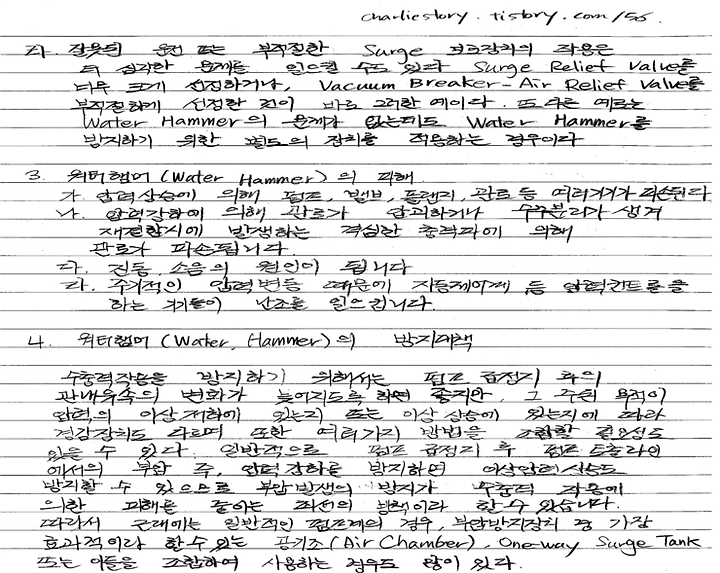 charliestory.tistory.com/56.
라. 잘못된 운전 또는 부적절한 Surge 보호장치의 작용은
더 심각한 문제를 일으킬 수도 있다 Surge Relief Valve를
너무 크게 선정하거나, Vacuum Breaker-Air Relief Valve를
부적절하게 선정한 것이 바로 그러한 예이다. 또 다른 예로는
Water Hammer의 문제가 없는데도 Water Hammer를
방지하기 위한 별도의 장치를 적용하는 경우이다
3. 워터햄머(Water Hammer)의 피해
가. 압력상승에 의해 펌프, 밸브, 플랜지, 관로 등 여러기기가 파손된다
나. 압력강하에 의해 관로가 압괴하거나 수주분리가 생겨
재결합시에 발생하는 격심한 충력파에 의해
관로가 파손됩니다.
다. 진동, 소음의 원인이 됩니다
라. 주기적인 압력변동 때문에 자동제어계 등 압력컨트롤을
하는 기기들이 난조를 일으킵니다.
4. 워터햄머(Water, Hammer)의 방지대책
수충력작용을 방지하기 위해서는 펌프 급정지 후의
관내유속의 변화가 늦어지도록 하면 좋지만, 그 주된 목적이
압력의 이상저하에 있는지 또는 이상 상승에 있는지에 따라
경감장치도 다르며 또한 여러가지 방법을 조합할 필요성도
있을 수 있다. 일반적으로 펌프 급정지 후 펌프 토출라인
에서의 부압 주, 압력강하를 방지하면 이상압력상승도
방지할 수 있으므로 부압발생의 방지가 수충력 작용에
의한 피해를 줄이는 최선의 방책이라 할 수 있습니다.
따라서 근래에는 일반적인 펌프계의 경우, 부압방지장치 중 가장
효과적이라 할 수 있는 공기조(Air Chamber), One-way Surge Tank
또는 이들을 조합하여 사용하는 경우도 많이 있다.